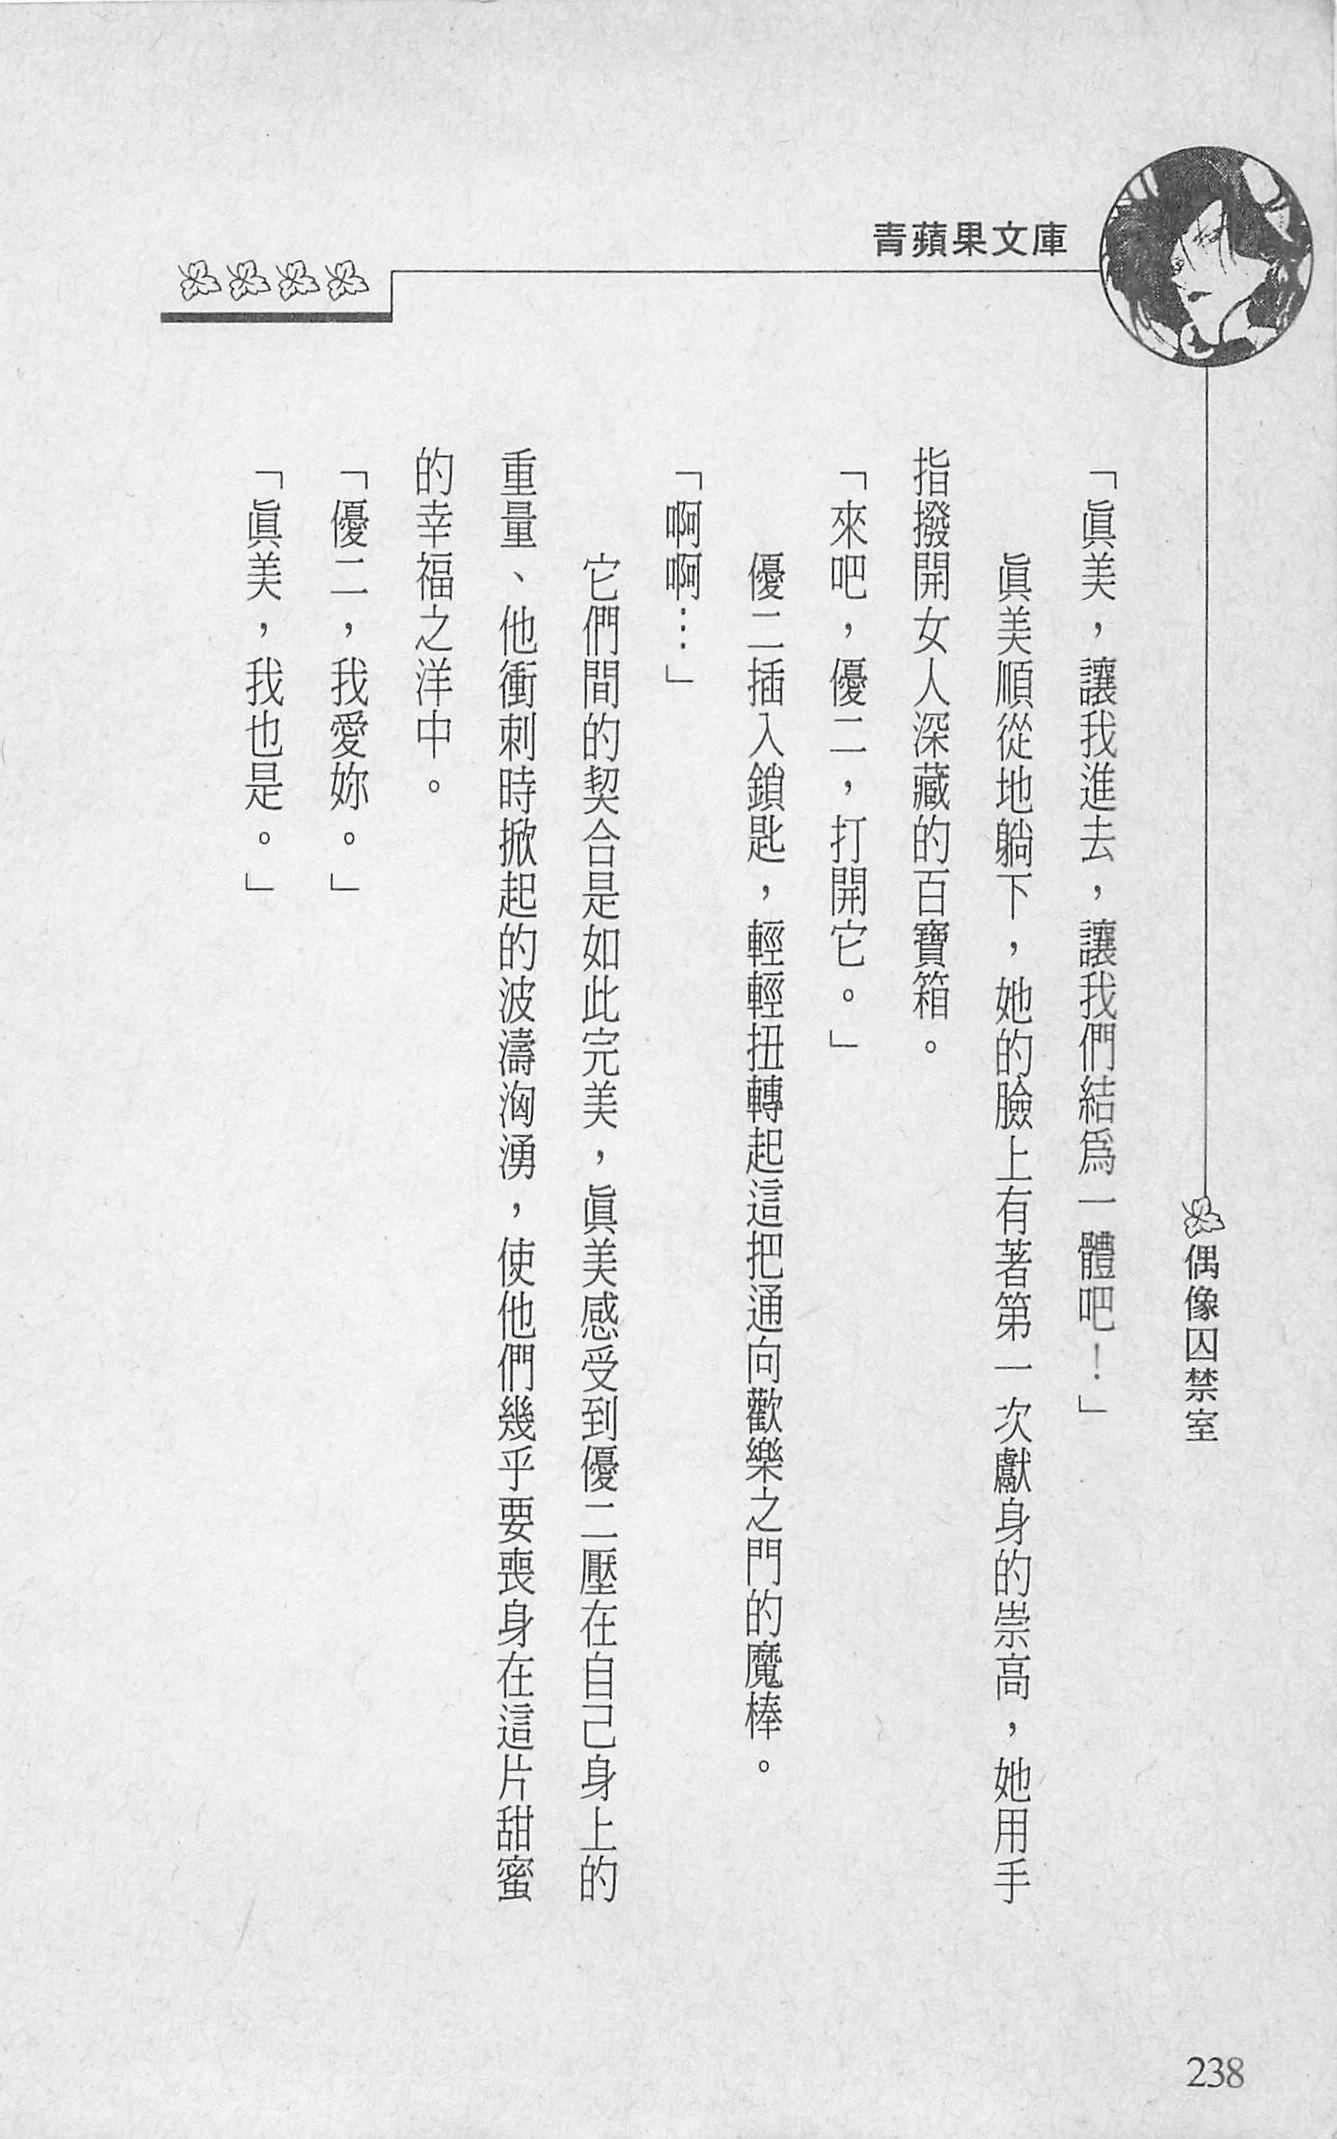 青蘋果文庫
偶像囚禁室
「眞美，讓我進去，讓我們結爲一體吧！」
眞美順從地躺下，她的臉上有著第一次獻身的崇高，她用手
指撥開女人深藏的百寶箱。
「來吧，優二，打開它。」
優二插入鎖匙，輕輕扭轉起這把通向歡樂之門的魔棒。
「啊啊…」
它們間的契合是如此完美，眞美感受到優二壓在自己身上的
重量、他衝刺時掀起的波濤洶湧，使他們幾乎要喪身在這片甜蜜
的幸福之洋中。
「優二，我愛妳。」
「眞美，我也是。」
238